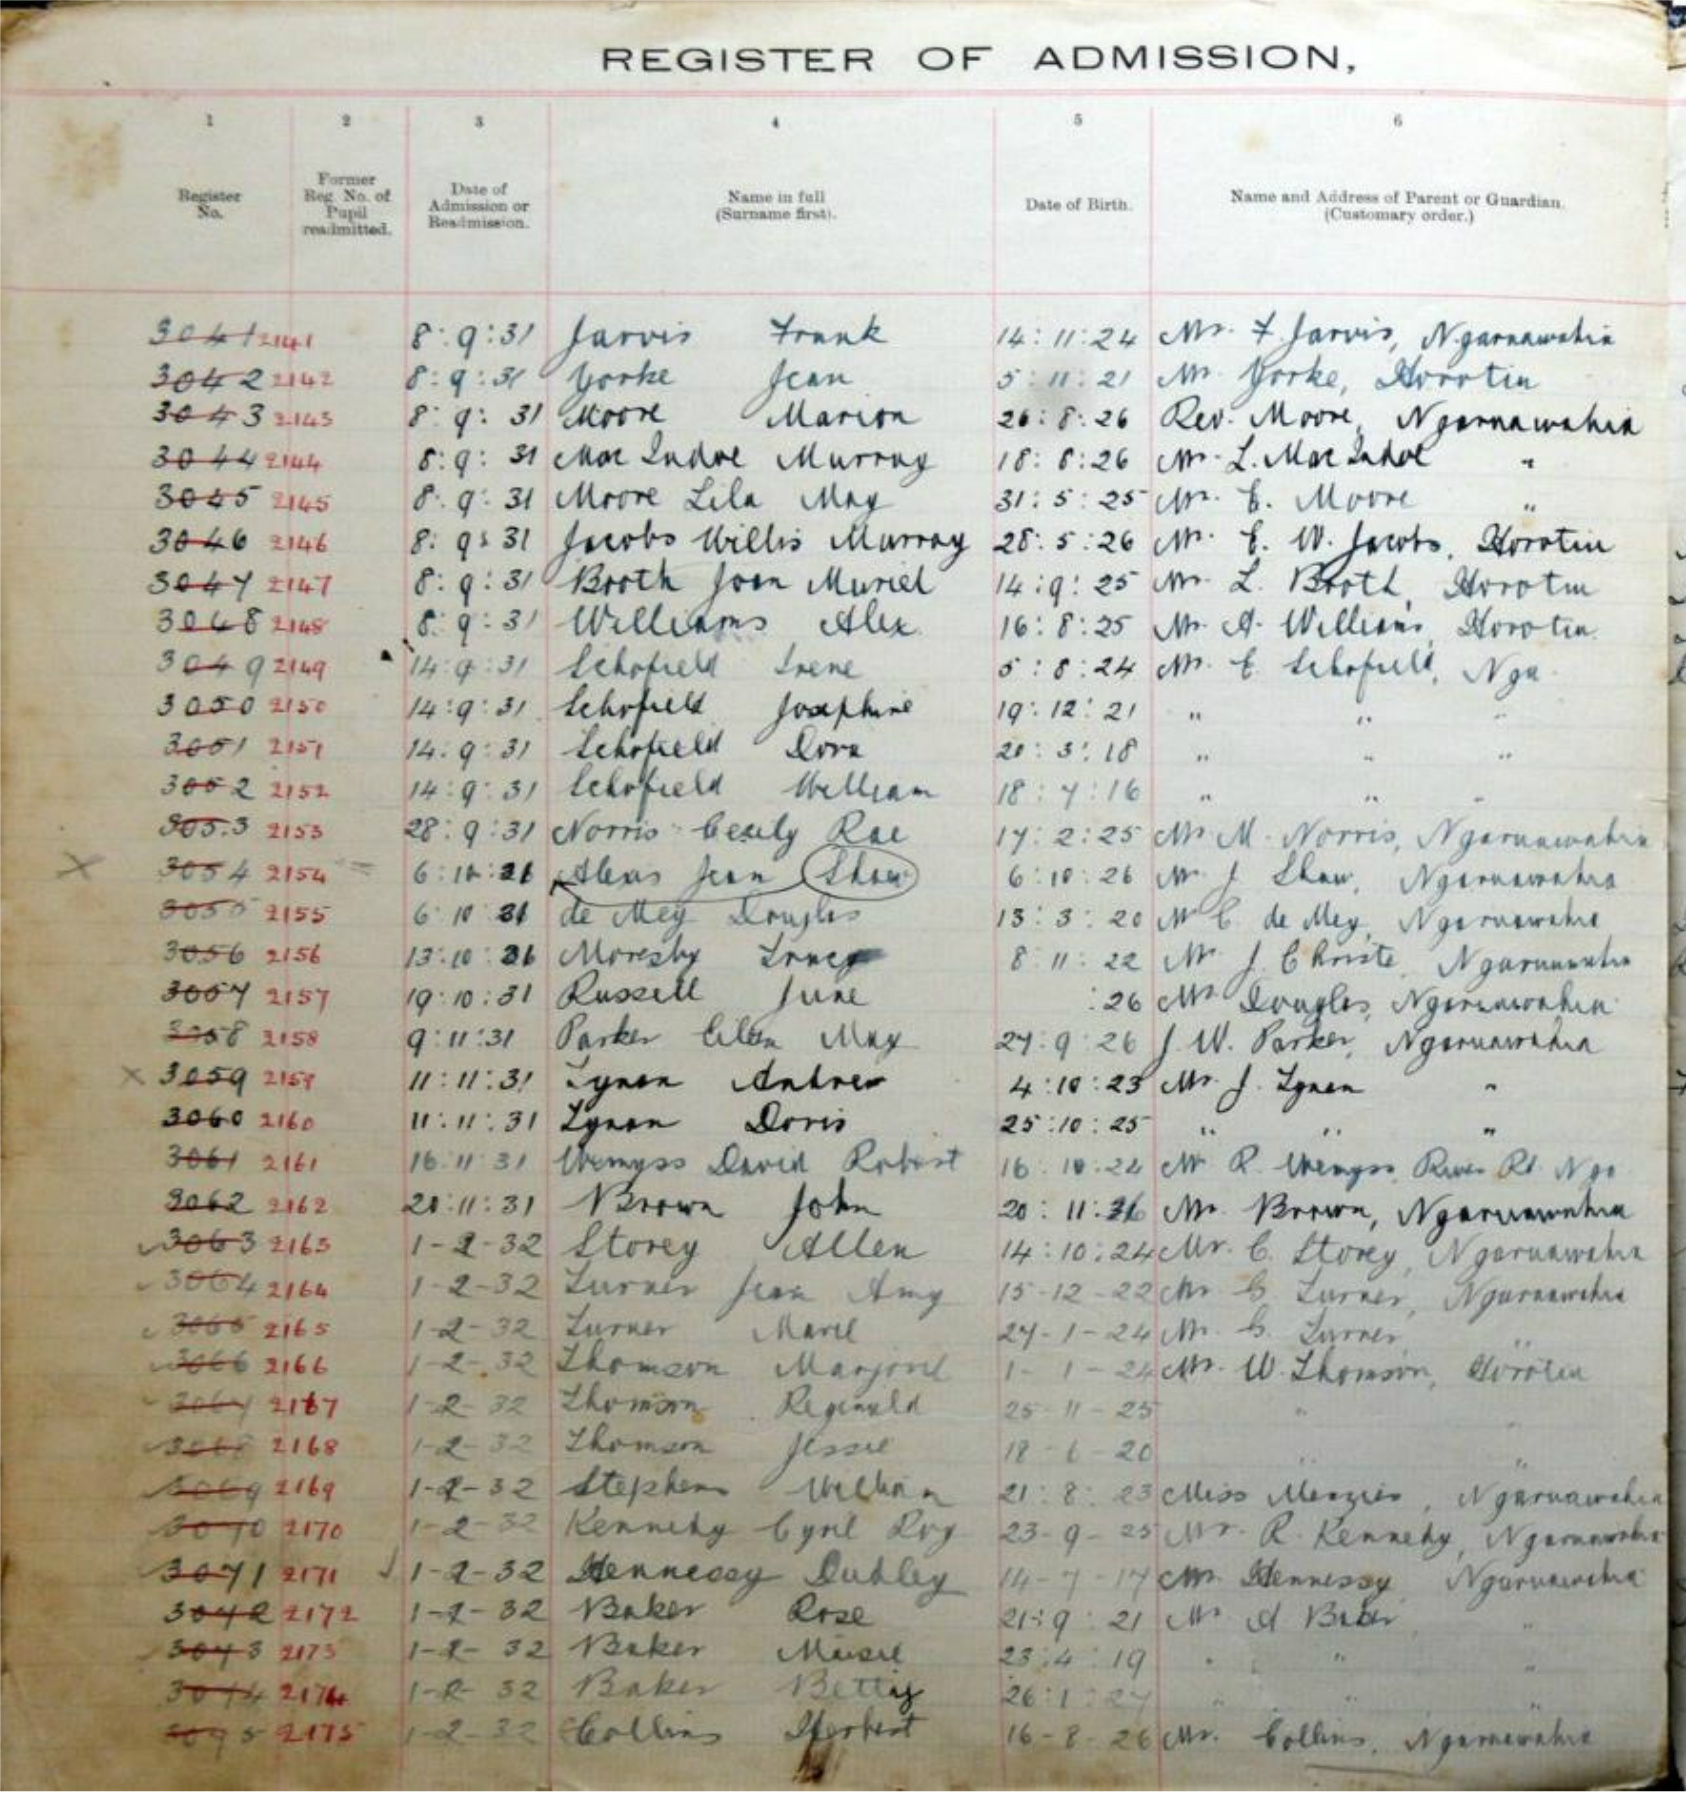 REGISTER OF ADMISSION,
1 2 3 4 5 6
Register No. Former Reg. No. of Pupil readmitted. Date of Admission or Readmission. Name in full (Surname first). Date of Birth. Name and Address of Parent or Guardian. (Customary order.)
3041 2141 8:9:31 Jarvis Frank 14:11:24 Mr. F. Jarvis, Ngaruawahia
3042 2142 8:9:31 Yorke Jean 5:11:21 Mr. Yorke, Horotiu
3043 2143 8:9:31 Moore Marion 26:8:26 Rev. Moore, Ngaruawahia
3044 2144 8:9:31 Mac Indoe Murray 18:8:26 Mr. L. Mac Indoe "
3045 2145 8:9:31 Moore Lila May 31:5:25 Mr. E. Moore "
3046 2146 8:9:31 Jacobs Willis Murray 28:5:26 Mr. E. W. Jacobs, Horotiu
3047 2147 8:9:31 Booth Joan Muriel 14:9:25 Mr. L. Booth, Horotiu
3048 2148 8:9:31 Williams Alex. 16:8:25 Mr. A. Williams, Horotiu.
3049 2149 14:9:31 Schofield Irene 5:8:24 Mr. E. Schofield, Nga.
3050 2150 14:9:31 Schofield Josephine 19:12:21 " " "
3051 2151 14:9:31 Schofield Dora 20:3:18 " " "
3052 2152 14:9:31 Schofield William 18:7:16 " " "
3053 2153 28:9:31 Norris Cecily Rae 17:2:25 Mr M. Norris, Ngaruawahia
X 3054 2154 = 6:10:31 Alexis Jean Shaw 6:10:26 Mr J Shaw, Ngaruawahia
3055 2155 6:10:31 de Mey Douglas 13:3:20 Mr C. de Mey, Ngaruawahia
3056 2156 13:10:31 Moresby 8:11:22 Mr. J. Christe, Ngaruawahia
3057 2157 19:10:31 Russell June :26 Mr Douglas, Ngaruawahia
3058 2158 9:11:31 Parker Eileen May 27:9:26 J. W. Parker, Ngaruawahia
X 3059 2159 11:11:31 Lynan Andrew 4:10:23 Mr. J. Lynan "
3060 2160 11:11:31 Lynan Doris 25:10:25 " " "
3061 2161 16:11:31 Wemyss David Robert 16:10:24 Mr R. Wemyss River Rd. Nga
3062 2162 20:11:31 Brown John 20:11:26 Mr. Brown, Ngaruawahia
3063 2163 1-2-32 Storey Allen 14:10:24 Mr. C. Storey, Ngaruawahia
3064 2164 1-2-32 Turner Jean Amy 15-12-22 Mr G Turner, Ngaruawahia
3065 2165 1-2-32 Turner 27-1-24 Mr. G. Turner "
3066 2166 1-2-32 Thomson Marjorie 1-1-24 Mr. W. Thomson, Horotiu
3067 2167 1-2-32 Thomson Reginald 25-11-25 " "
3068 2168 1-2-32 Thomson Jessie 18-6-20 " "
3069 2169 1-2-32 Stephens William 21:8:23 Miss Menzies, Ngaruawahia
3070 2170 1-2-32 Kennedy Cyril Roy 23-9-25 Mr. R. Kennedy, Ngaruawahia
3071 2171 1-2-32 Hennessy Dudley 14-7-17 Mr. Hennessy Ngaruawahia
3072 2172 1-2-32 Baker Rose 21:9:21 Mr A Baker "
3073 2173 1-2-32 Baker Maisie 23:4:19 " " "
3074 2174 1-2-32 Baker Betty 26:1:27 " " "
3075 2175 1-2-32 Collins Herbert 16-8-26 Mr. Collins, Ngaruawahia